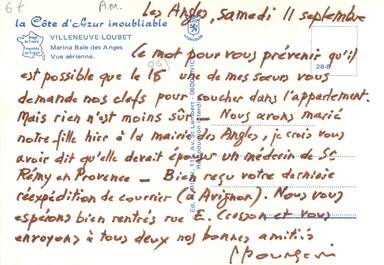 6t
A.M.
Les Angles, samedi 11 septembre
la Côte d'Azur inoubliable
VILLENEUVE-LOUBET
Marina Baie des Anges
Vue aérienne.
Ce mot pour vous prévenir qu'il
(06)
est possible que le 15 une de mes sœurs vous
demande nos clefs pour coucher dans l'appartement.
Mais rien n'est moins sûr - Nous avons marié
notre fille hier à la mairie des Angles, je crois vous
avoir dit qu'elle devait épouser un médecin de St
Rémy en Provence - Bien reçu votre dernière
réexpédition de courrier (à Avignon). Nous vous
espérons bien rentrés rue E. Cresson et vous
envoyons à tous deux nos bonnes amitiés